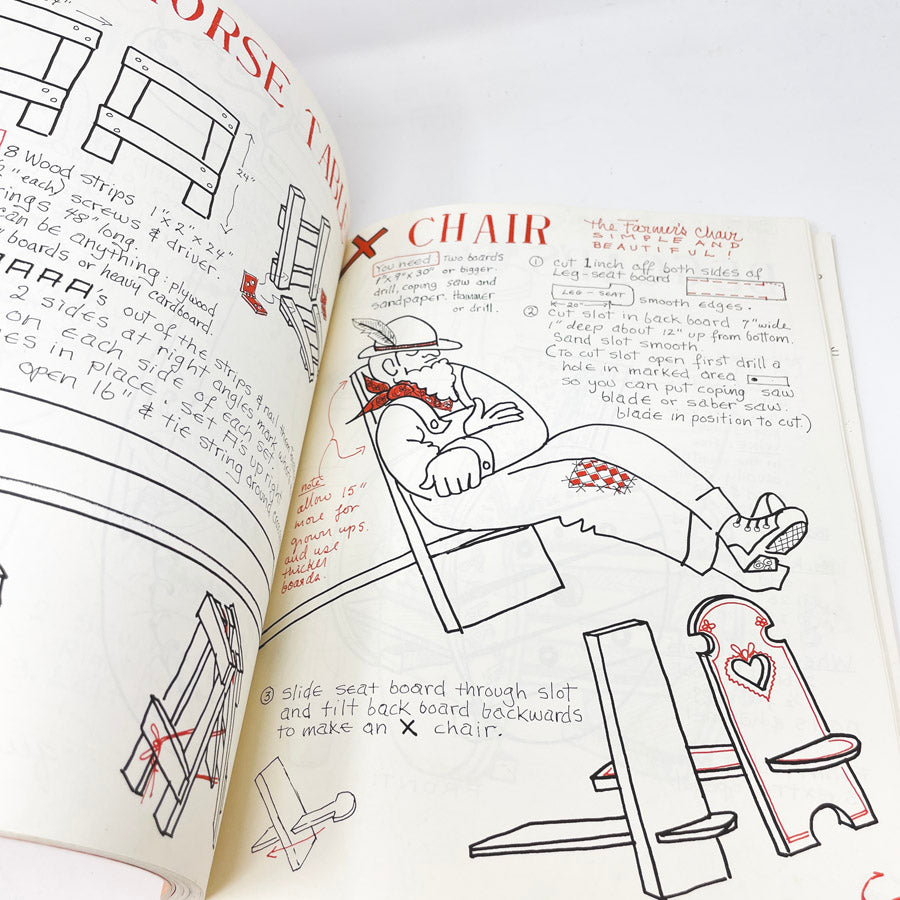 HORSE TABLE
24"
8 wood strips 1"x2"x24"
2" each) screws & driver.
48" long.
can be anything: plywood
boards or heavy cardboard.
AAAAs out of the strips & nail them
2 sides at right angles
on each side mark where
in place of each set.
Set A's up, light
open 16" & tie string around
X CHAIR
The Farmer's Chair
SIMPLE AND
BEAUTIFUL!
You need Two boards
1"x9"x30" or bigger.
drill, coping saw and
sandpaper. Hammer
or drill.
① cut 1 inch off both sides of
Leg-seat board
LEG - SEAT
K-20"
smooth edges.
② cut slot in back board 7" wide
1" deep about 12" up from bottom.
Sand slot smooth.
(To cut slot open first drill a
hole in marked area
so you can put coping saw
blade or saber saw
blade in position to cut.)
note
allow 15"
more for
grown ups.
and use
thicker
boards.
③ slide seat board through slot
and tilt back board backwards
to make an X chair.